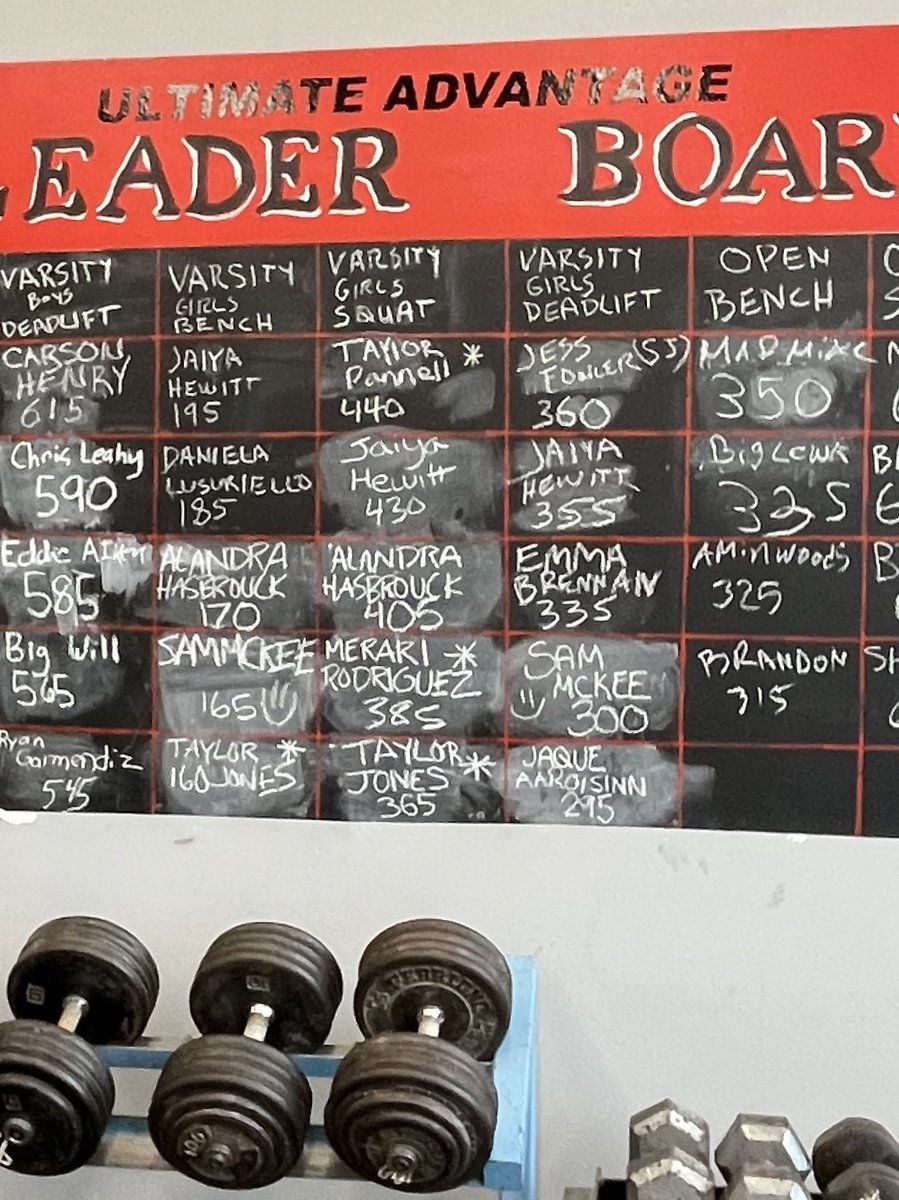 ULTIMATE ADVANTAGE
LEADER BOAR
VARSITY
BOYS
DEADLIFT
CARSON
HENRY
615
Chris Leahy
590
Eddie
585
Big Will
565
Ryan
545
VARSITY
GIRLS
BENCH
JAIYA
HEWITT
195
DANIELA
LUSURIELLO
185
ALANDRA
HASBROUCK
170
SAM MCKEE
165
TAYLOR *
160 JONES
VARSITY
GIRLS
SQUAT
TAYlOR *
Pannell
440
Jaiya
Hewitt
430
ALANDRA
HASBROUCK
405
MERARI *
RODRIGUEZ
385
TAYLOR
JONES *
365
VARSITY
GIRLS
DEADLIFT
JESS (SJ)
FOWLER
360
JAIYA
HEWITT
355
EMMA
BRENNAN
335
SAM
MCKEE
300
JAQUE
AAROISINN
295
OPEN
BENCH
MAD MIKE
350
Big
335
AMiN WOODS
325
BRANDON
315